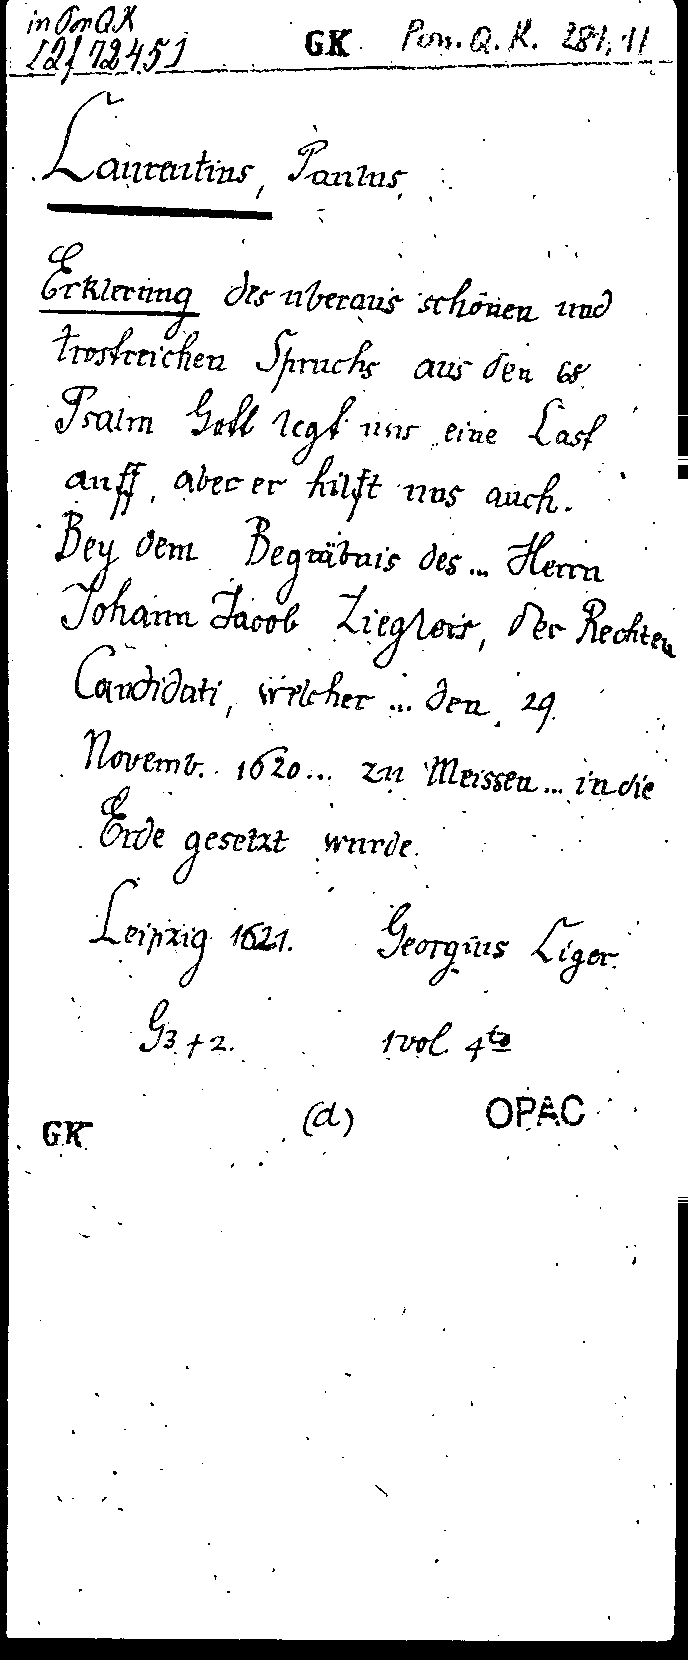 in Pon QK
12f 72451
GK Pon. Q. K. 281, 11
Laurentius, Paulus.
Erklerung des uberaus schönen und
trostreichen Spruchs aus den 68.
Psalm Gott legt uns eine Last
auff, aber er hilfft uns auch.
Bey dem Begräbnis des... Herrn
Johann Jacob Zieglers, der Rechten
Candidati, welcher ... den 29.
Novemb. 1620... zu Meissen... in die
Erde gesetzt wurde.
Leipzig 1621. Georgius Liger.
G3 + 2. 1 vol 4to
GK (d) OPAC